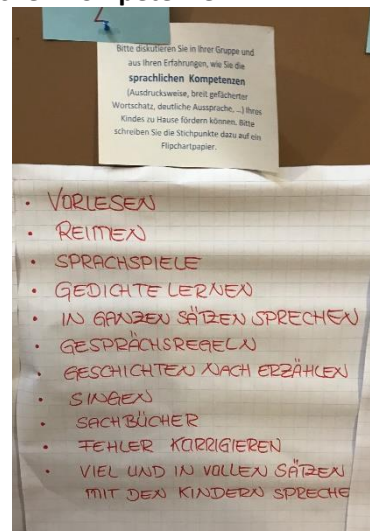 Bitte diskutieren Sie in Ihrer Gruppe und
aus Ihren Erfahrungen, wie Sie die
sprachlichen Kompetenzen
(Ausdrucksweise, breit gefächerter
Wortschatz, deutliche Aussprache, ...) Ihres
Kindes zu Hause fördern können. Bitte
schreiben Sie die Stichpunkte dazu auf ein
Flipchartpapier.
• VORLESEN
• REIMEN
• SPRACHSPIELE
• GEDICHTE LERNEN
• IN GANZEN SÄTZEN SPRECHEN
• GESPRÄCHSREGELN
• GESCHICHTEN NACH ERZÄHLEN
• SINGEN
• SACHBÜCHER
• FEHLER KORRIGIEREN
• VIEL UND IN VOLLEN SÄTZEN
MIT DEN KINDERN SPRECHE